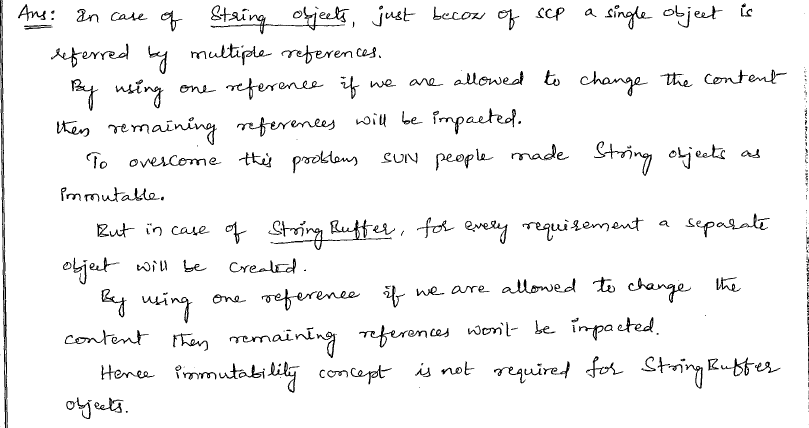 Ans: In case of String objects, just becoz of SCP a single object is
referred by multiple references.
By using one reference if we are allowed to change the content
then remaining references will be impacted.
To overcome this problem SUN people made String objects as
immutable.
But in case of StringBuffer, for every requirement a separate
object will be created.
By using one reference if we are allowed to change the
content then remaining references won't be impacted.
Hence immutability concept is not required for StringBuffer
objects.